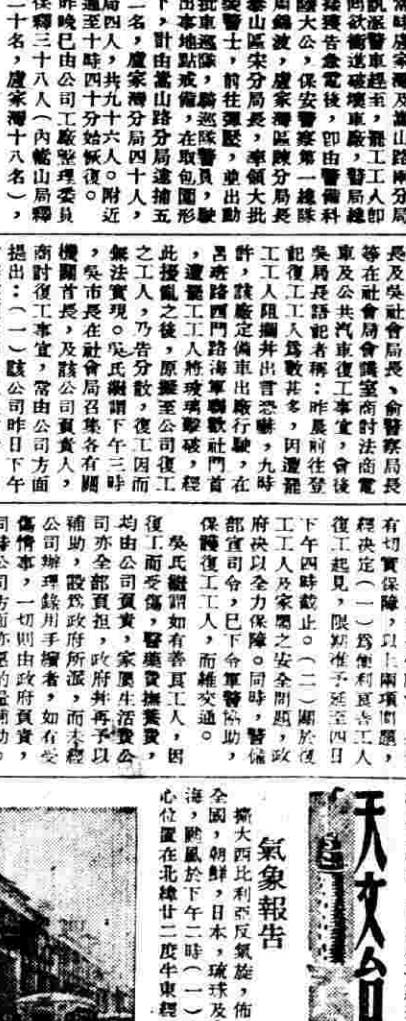 兩分局
派警車趕至,罷工工人卽
欲衝進破壞車廠,警局總
接獲告急電後,卽由警備科
陸大公,保安警察第一總隊
周錦波,盧家灣區陳分局長
泰山區宋分局長,率領大批
裝警士,前往彈壓,並出動
批車巡隊,騎巡隊警員,駛
出事地點戒備,在取包圍形
下,計由嵩山路分局逮捕五
一名,盧家灣分局四十人,
局四人,共九十六人。附近
通至十時四十分始恢復。
昨晚已由公司工廠整理委員
保釋三十八人(內嵩山局釋
二十名,盧家灣十八名),
長及吳社會局長、俞警察局長
等在社會局會議室商討法商電
車及公共汽車復工事宜,會後
吳局長語記者稱:昨晨前往登
記復工工人爲數甚多,因遭罷
工工人阻攔幷出言恐嚇,九時
許,該廠定備車出廠行駛,在
呂班路西門路海軍聯歡社門首
,遭罷工工人將玻璃擊破,經
此擾亂之後,原擬至公司復工
之工人,乃告分散,復工因而
無法實現。吳氏繼謂下午三時
,吳市長在社會局召集各有關
機關首長,及該公司負責人,
商討復工事宜,當由公司方面
提出:(一)該公司昨日下午
有切實保障,以上兩項問題,
經決定(一)爲便利良善工人
復工起見,限期准予延至四日
下午四時截止。(二)關於復
工工人及家屬之安全問題,政
府決以全力保障。同時,警備
部宣司令,已下令軍警協助,
保護復工工人,而維交通。
吳氏繼謂如有善良工人,因
復工而受傷,醫藥費撫養費,
均由公司負責,家屬生活費公
司亦全部負担,政府幷再予以
補助,設爲政府所派,而未經
公司辦理錄用手續者,如有受
傷情事,一切則由政府負責,
天文台
氣象報告
據大西比利亞反氣旋,佈
全國,朝鮮,日本,琉球及
海,颱風於下午二時(一)
心位置在北緯廿二度半東經